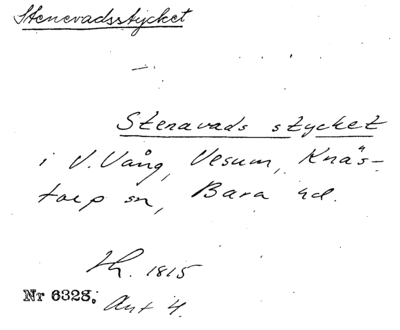 Stenevadsstycket
Stenavads stycket
i V. Vång, Vesum, Knäs-
torp sn, Bara hd.
Lh. 1815
Nr 6328.
Akt 4.